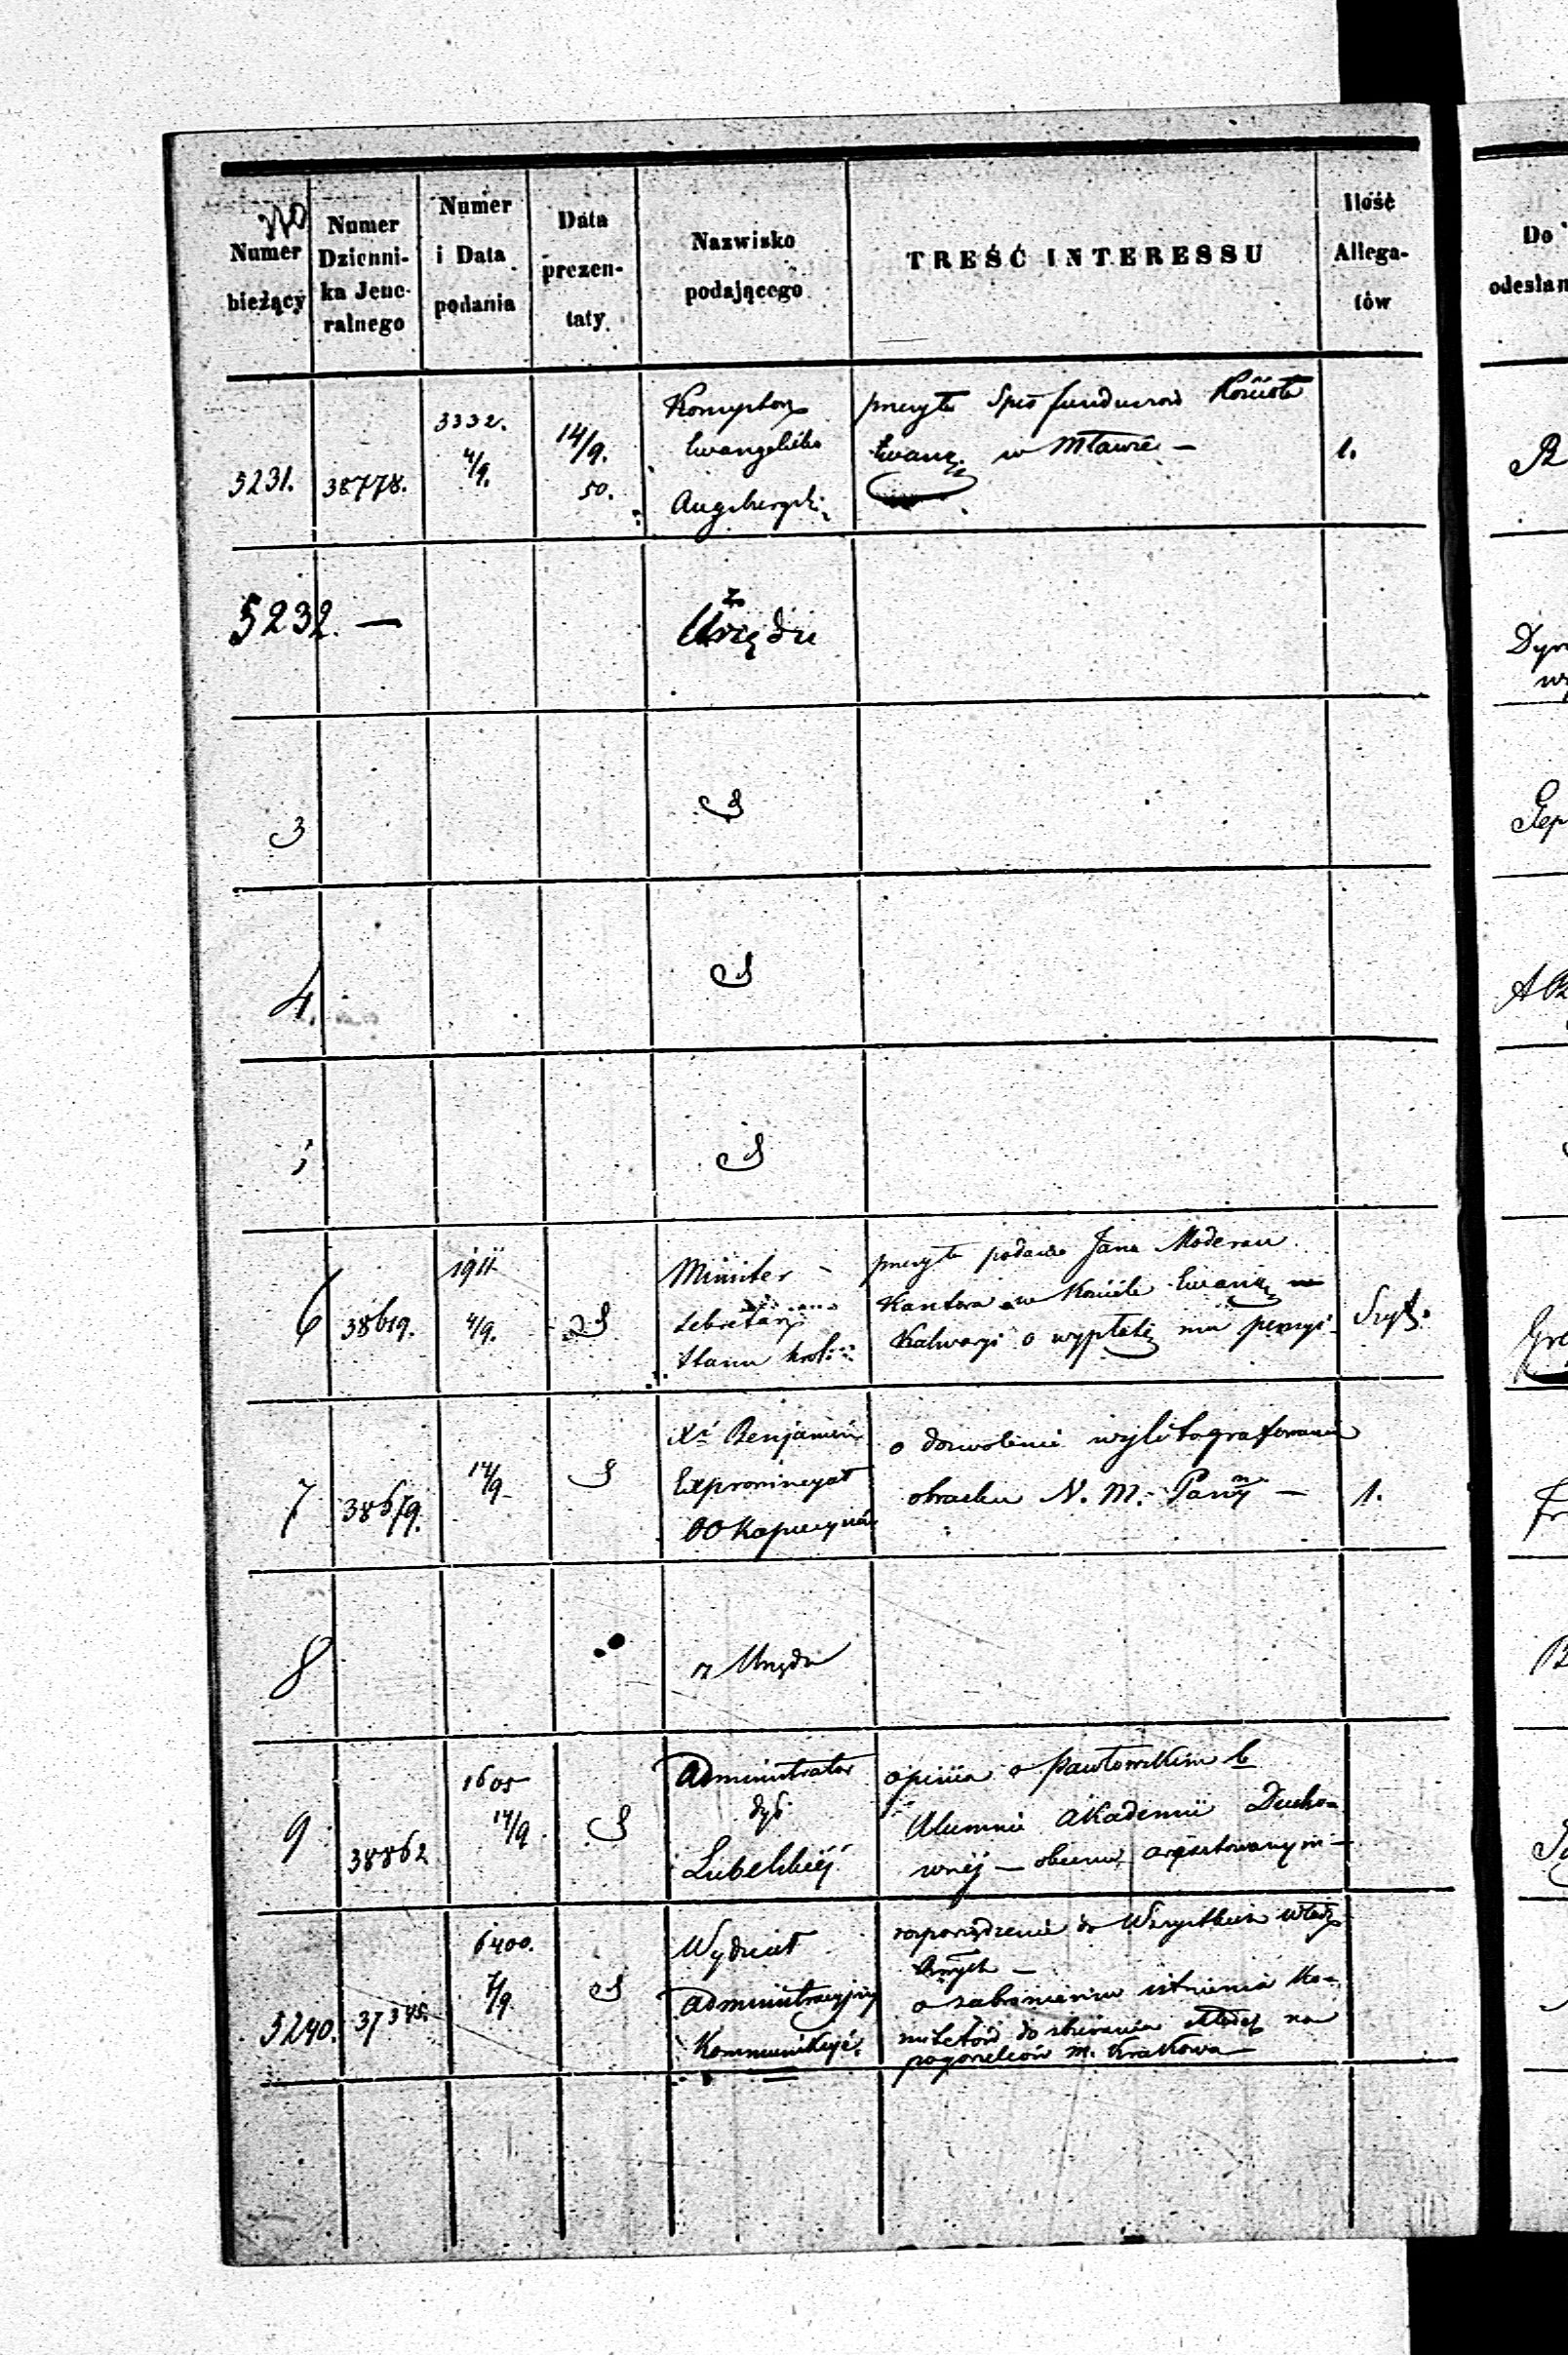 No
Numer
bieżący
Numer
Dzienni-
ka Jene-
ralnego
Numer
i Data
podania
Data
prezen-
taty.
Nazwisko
podającego
TREŚĆ INTERESSU
Ilość
Allega-
tów
Do
odesłan
5231.
38778.
3332.
4/9.
14/9.
50.
Konsystorz
Ewangelicko
Augsburgski
przesyła Spis funduszów Kościoła
Ewang. w Mławie —
1.
5232. —
z
Urzędu
Dyr
3
4
5
6
38619.
1911
4/9.
Minister
Sekretarz
Stanu Król:
przesyła podanie Jana Moderau
Kantora w Kościele Ewang.
Kalwaryi o wypłatę mu pensyi
Szyt.
7
38679.
14/9
X. Benjamin
Exprowincyał
OO Kapucynów
o dozwolenie wylitografowania
obrazku N. M. Panny —
1.
8
z Urzędu
9
38862
1605
14/9.
Administrator
dyec.
Lubelskiéj
opinia o Pawłowskim b
Alumnie Akademii Ducho-
wnéj — obecnie aresztowanym —
5240.
37345.
6400.
7/9
Wydział
Administracyjny
Kommunikuje.
rozporządzenie do Wszystkich Władz
o zabronieniu istnienia Ko-
mitetów do zbierania składek na
pogorzelców m. Krakowa —